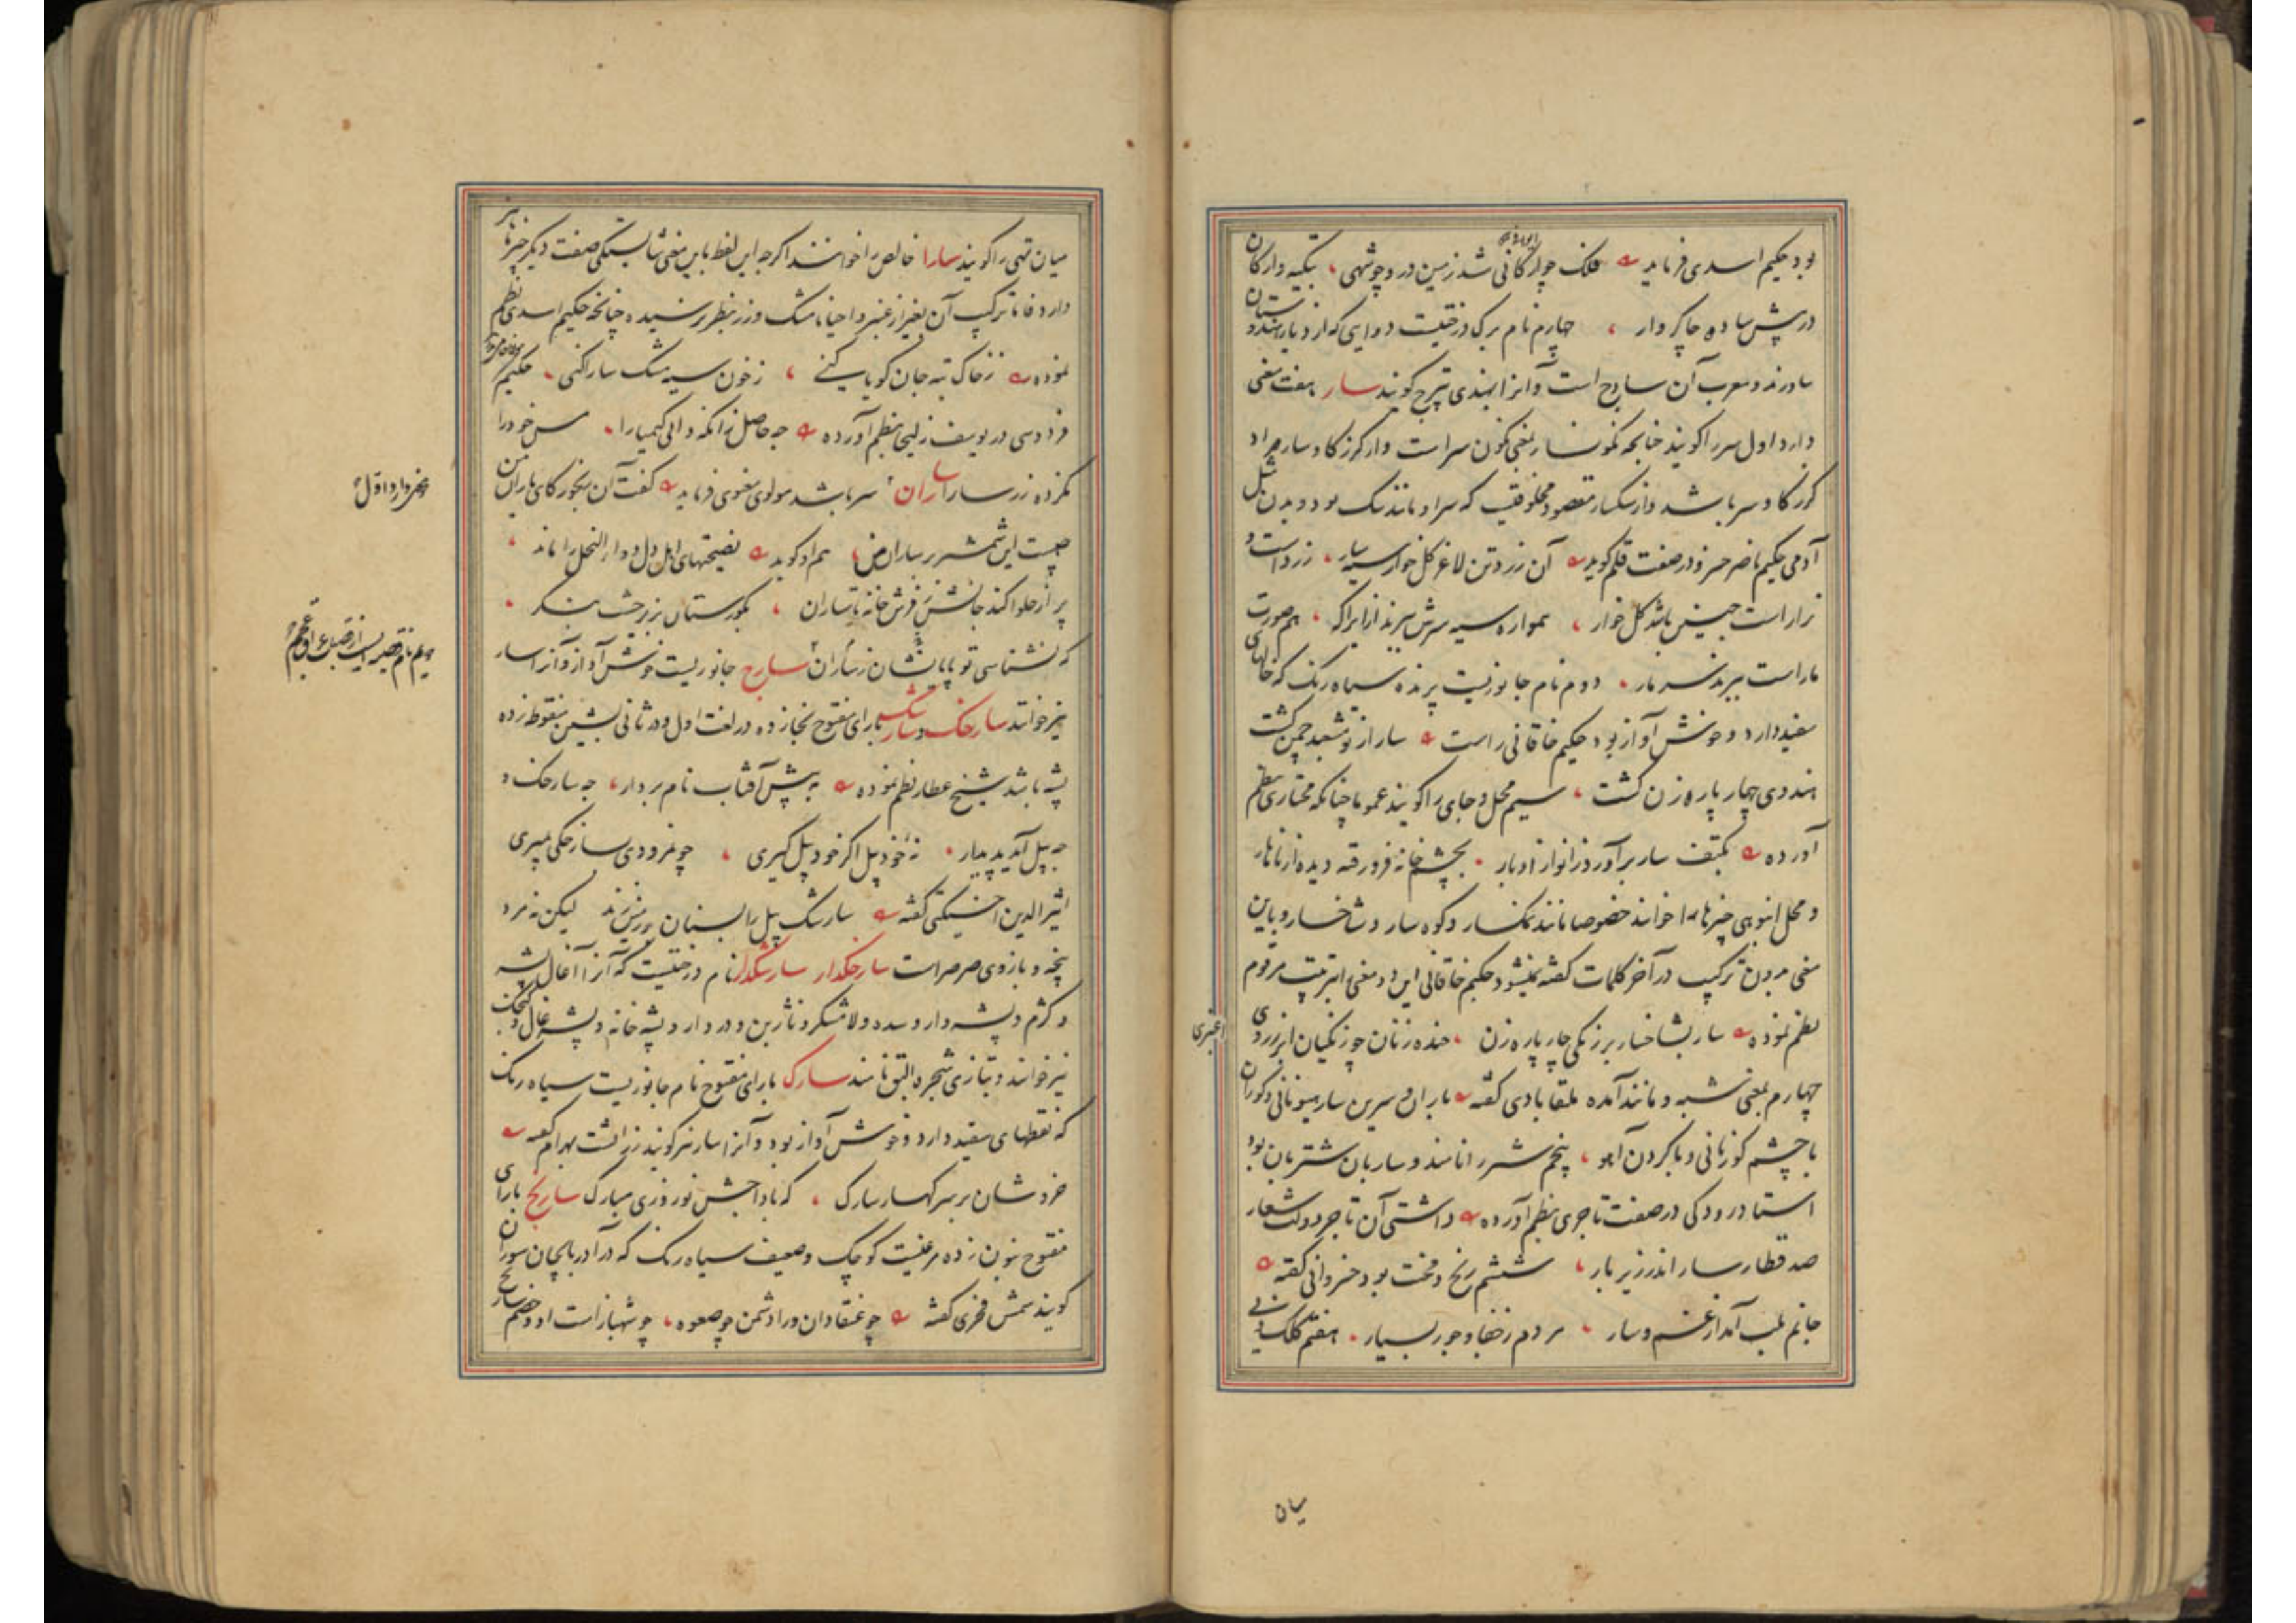 بود حکیم اسدی فرماید فلک چو ایوانی شد زمین در و چو شهی بتکیه وارکان
درپیش ساده چاکر وار چهارم نام برک درختیست دوایی که از دیار هندوستان
بیاورند و معرب آن ساذج است و آنرا بهندی پترج کویند سار هفت معنی
دارد اول سر را کویند چنانچه نکونسار بمعنی نکون سر است و از کرز کاوسار مراد
کرز کاوسر باشد و از سکسار مقصود مخلوقیست که سر او مانند سک بود و بدن مثل
آدمی حکیم ناصر خسرو در صفت قلم کوید آن زرد تن لاغر کل خوار سیه سار زرد است و
نزار است چنین باشد کل خوار همواره سیه سرش ببرند از ایراک هم صورت
مار است ببرند سر مار دوم نام جانوریست پرنده سیاه رنک که خالهای
سفید دارد و خوش آواز بود حکیم خاقانی راست سار از تو مشعبد چمن کشت
هندوی چهار پاره زن کشت سیم محل و جای را کویند عموما چنانکه مختاری بنظم
آورده بکتف سار برآورد زانو از ادبار بچشم خانه فرو رفته دیده از ناهار
و محل انبوهی چیزها را خوانند خصوصا مانند نمکسار و کوه سار و شاخسار و باین
معنی بدون ترکیب در آخر کلمات کفته نمیشود حکیم خاقانی این دو معنی را بترتیب مرقوم
نظم نموده سار بشاخسار بر زنکی چار پاره زن خنده زنان چو زنکیان ابر ز روی
اغبری
چهارم بمعنی شبه و مانند آمده ملقابادی کفته
با چشم کوزنانی و با کردن آهو پنجم شتر را نامند و ساربان شتربان بود
استاد رودکی در صفت تاجری بنظم آورده داشتی آن تاجر دولت شعار
صد قطار سار اندر زیر بار ششم رنج و محنت بود خسروانی کفته
جانم بلب آمد از غم و سار مردم ز جفا و جور بسیار هفتم کلک
میان
میان تهی را کویند سارا خالص را خوانند اکرچه این لفظ باین معنی شایستکی صفت دیکر چیزها نیز
دارد فاما ترکیب آن بغیر از عنبر و احیانا مشک و زر بنظر نرسیده چنانچه حکیم اسدی نظم
نموده ز خاک تبه جان کویا کنی ز خون سیه مشک سارا کنی حکیم
فردوسی در یوسف زلیخا بنظم آورده چه حاصل زانکه دانی کیمیا را مس خود را
نکرده زر سارا ساران سر باشد مولوی معنوی فرماید کفت آن رنجور کای یاران من
چیست این شمشیر بر ساران من هم او کوید نصیحتهای اهل دل دوای النحل را ماند
پر از حلوا کند جانش ز فرش خانه تا ساران بکورستان برو خشت بنکر
که نشناسی تو پایانشان ز ساران سارج جانوریست خوش آواز و آنرا سار
نیز خوانند سارخک و سارشک بارای مفتوح بخا زده در لغت اول و در ثانی بشین منقوطه زده
پشه باشد شیخ عطار نظم نموده به پیش آفتاب نام بردار چه سارخک و
چه پیل آید پدیدار نه خود پیل اکر خود پیل کیری چو نمرودی ز سارخکی بمیری
اثیرالدین اخسیکتی کفته سارشک پیل را بسنان بر زمین زند لیکن نه مرد
پنجه و بازوی صرصر است سارخکدار سارشکدار نام درختیست که آنرا آغال پشه
و کژم و پشه دار و سده و لامشکر و نارون و دردار و پشه خانه و پشه غال و کنجک
نیز خوانند و بتازی شجرة البق نامند سارک بارای مفتوح نام جانوریست سیاه رنک
که نقطهای سفید دارد و خوش آواز بود و آنرا سار نیز کویند زراتشت بهرام کفته
خروشان بر سر کهسار سارک که بادا جشن نوروزی مبارک سارنج بارای
مفتوح بنون زده مرغیست کوچک و ضعیف سیاه رنک که در آذربایجان سوران
کویند شمس فخری کفته چو عنقا دان ورا دشمن چو صعوه چو شهباز است او و خصم سارنج